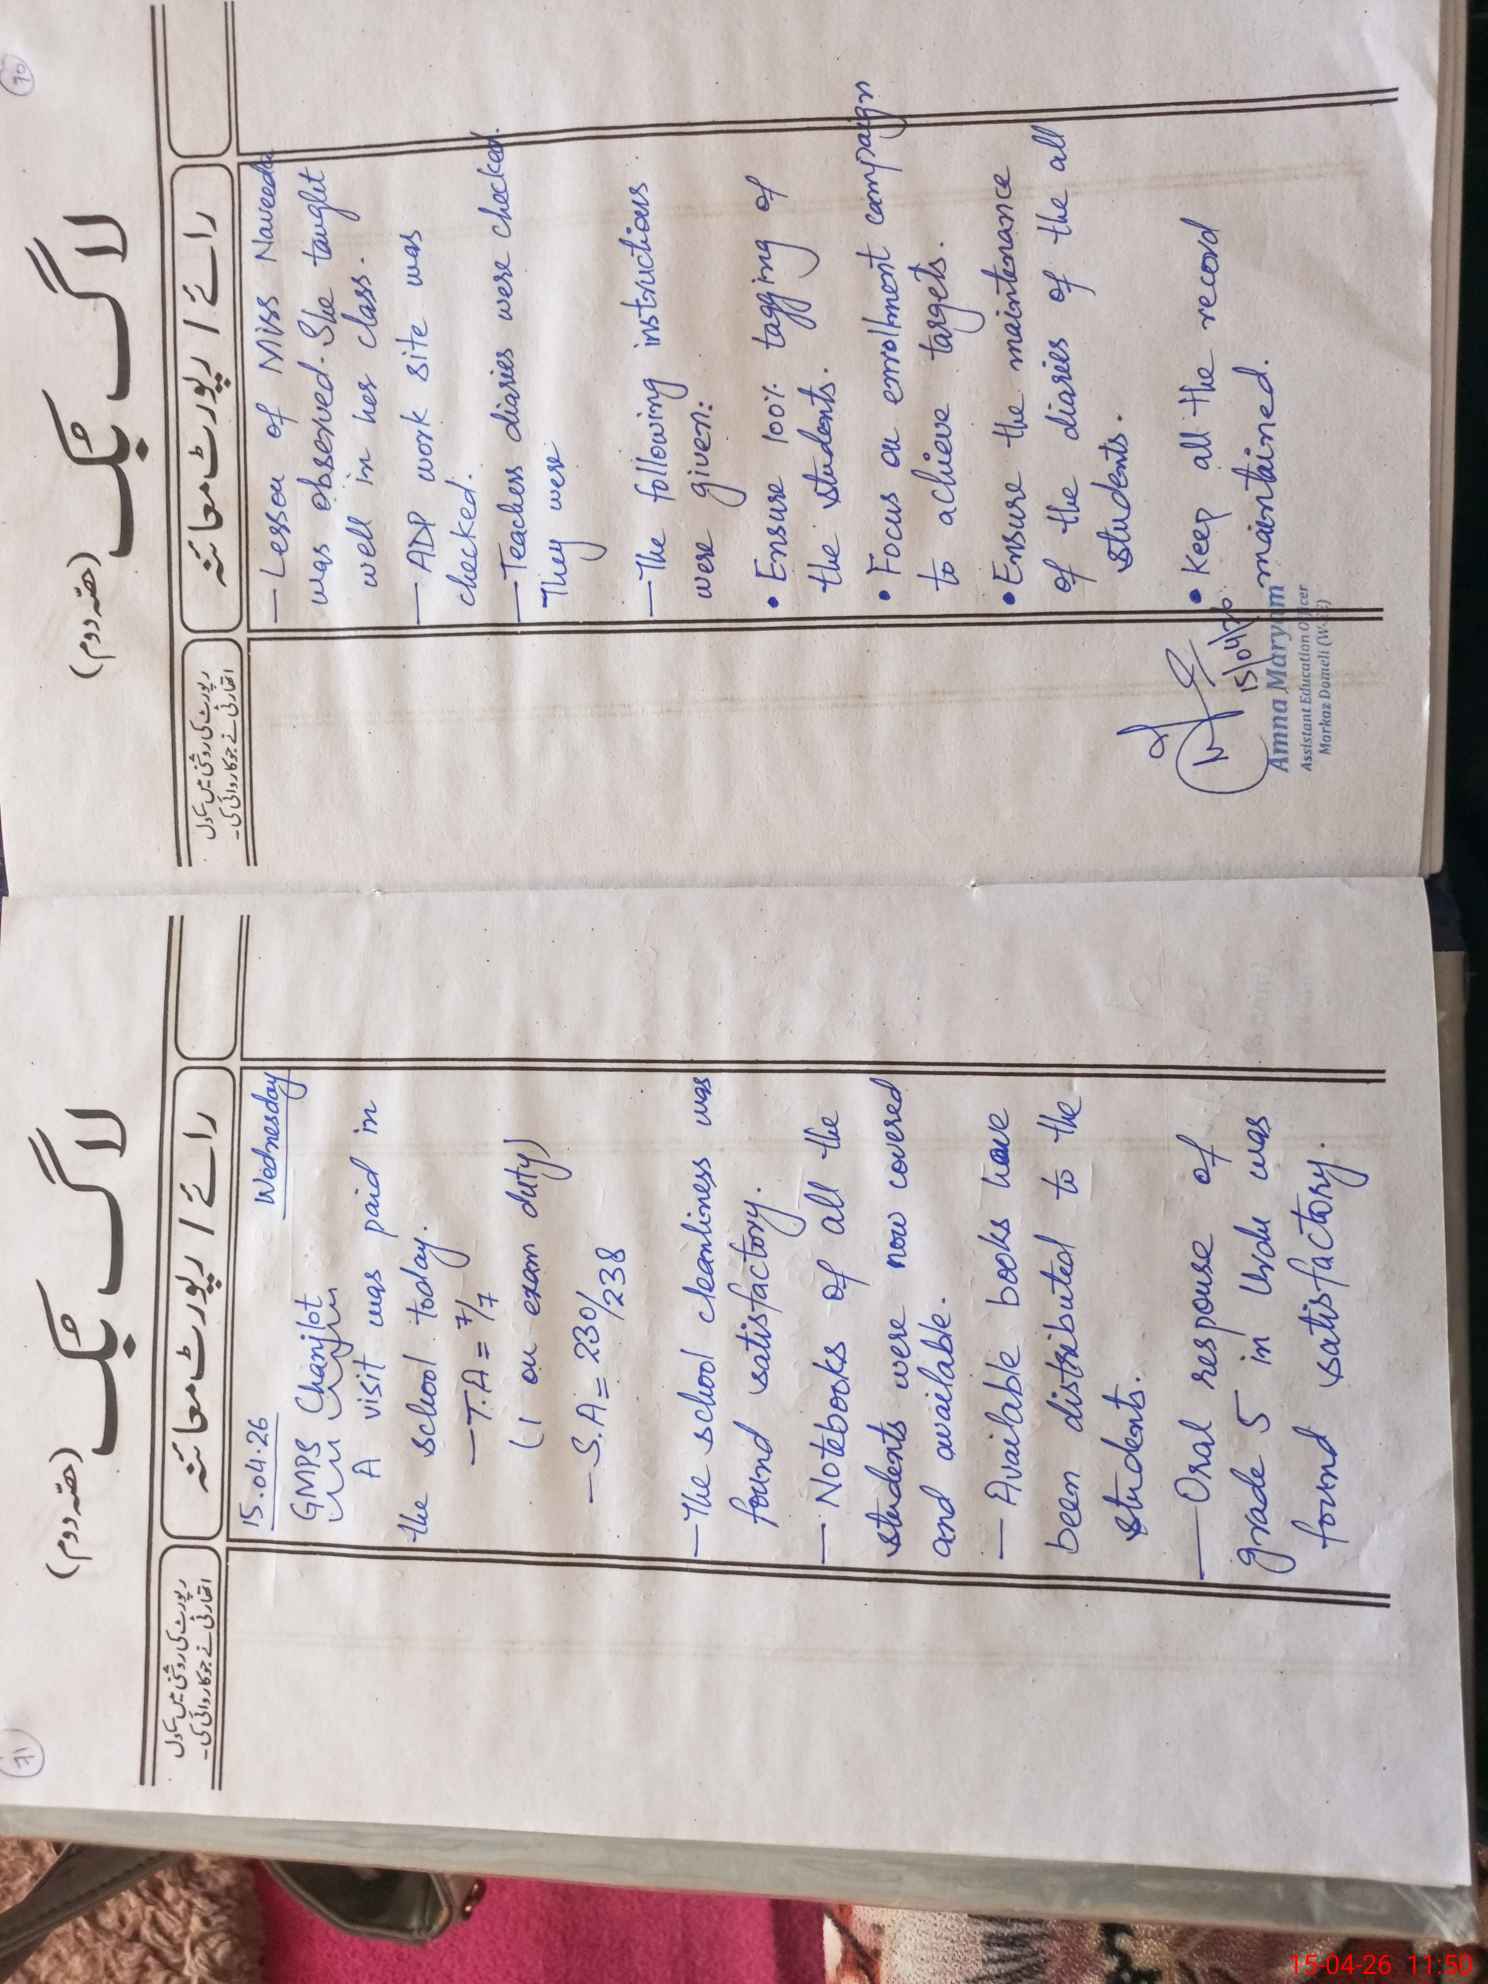 71
لاگ بک
(حصہ دوم)
رپورٹ کی روشنی میں سکول
اتھارٹی نے جو کارروائی کی۔
رائے / رپورٹ معائنہ
15.04.26 Wednesday
GMPS Chanjlot
A visit was paid in
the school today.
— T.A = 7/7
(1 on exam duty)
— S.A = 230/238
— The school cleanliness was
found satisfactory.
— Notebooks of all the
students were now covered
and available.
— Available books have
been distributed to the
students.
— Oral response of
grade 5 in Urdu was
found satisfactory.
70
لاگ بک
(حصہ دوم)
رپورٹ کی روشنی میں
اتھارٹی نے جو کارروائی کی۔
رائے / رپورٹ معائنہ
— Lesson of Miss Naveeda
was observed. She taught
well in her class.
— ADP work site was
checked.
— Teachers diaries were checked.
They were
— The following instructions
were given:
• Ensure 100% tagging of
the students.
• Focus on enrollment campaign
to achieve targets.
• Ensure the maintenance
of the diaries of the all
students.
• Keep all the record
maintained.
15/04/26
Amna Maryam
Assistant Education Officer
Markaz Domeli (W-EE)
15-04-26 11:50